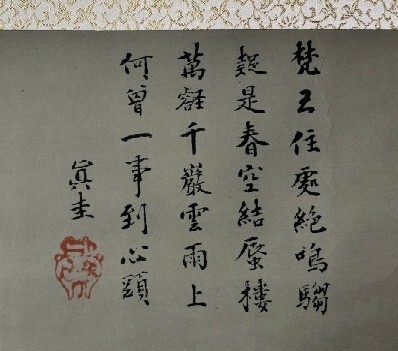 梵王住處絶鳴騶
疑是春空結蜃樓
萬壑千巖雲雨上
何曾一事到心頭
圭